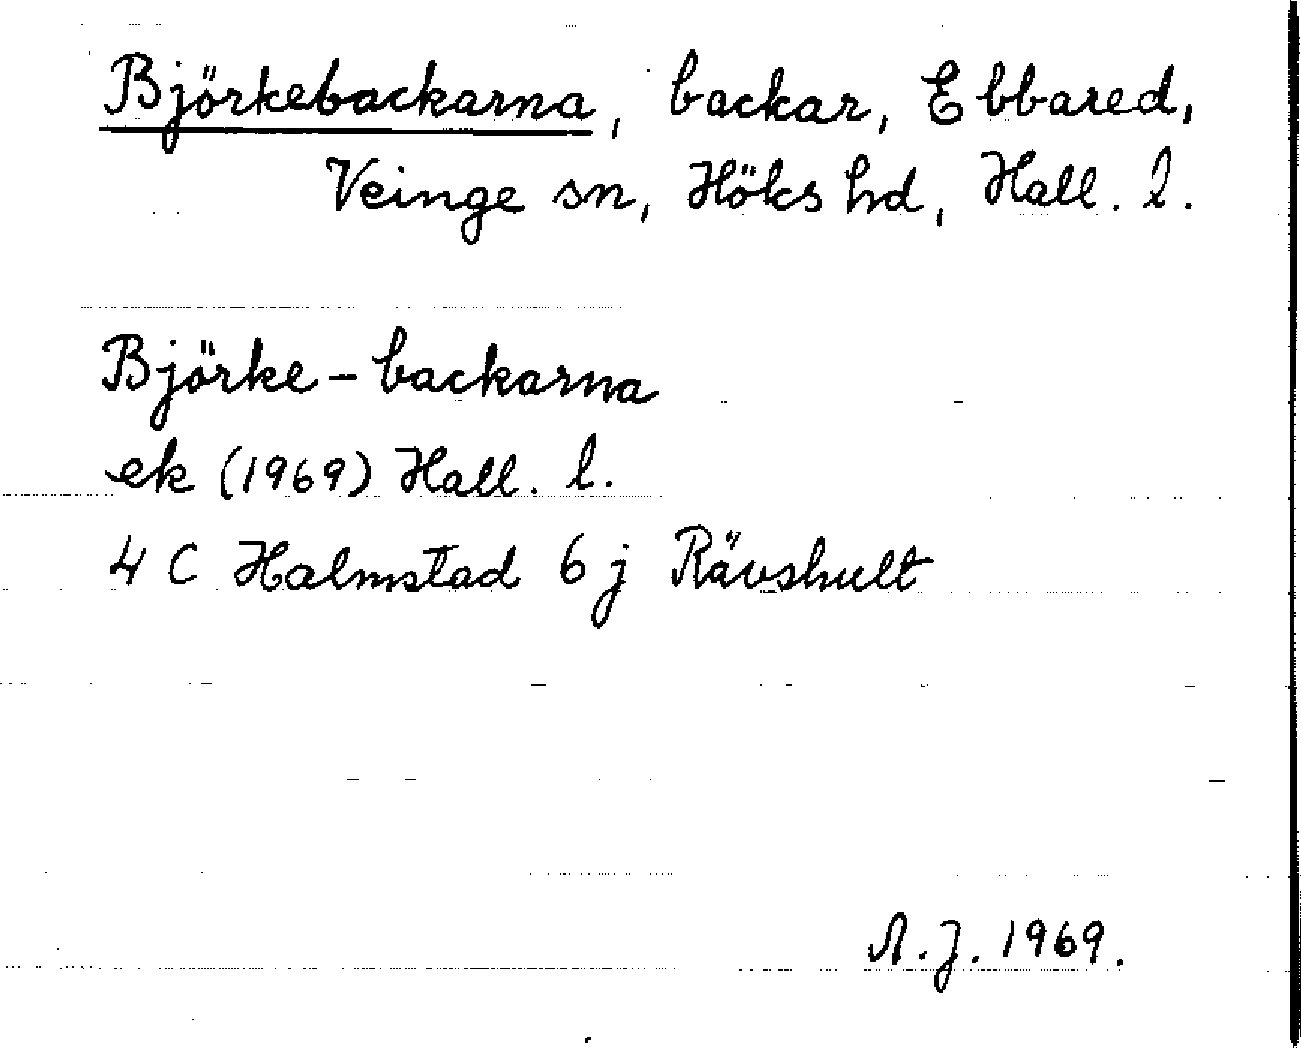 Björkebackarna, backar, Ebbared,
Veinge sn, Höks hd, Hall. l.
Björke-backarna
ek (1969) Hall. l.
4 C Halmstad 6 j Rävshult
A.J. 1969.